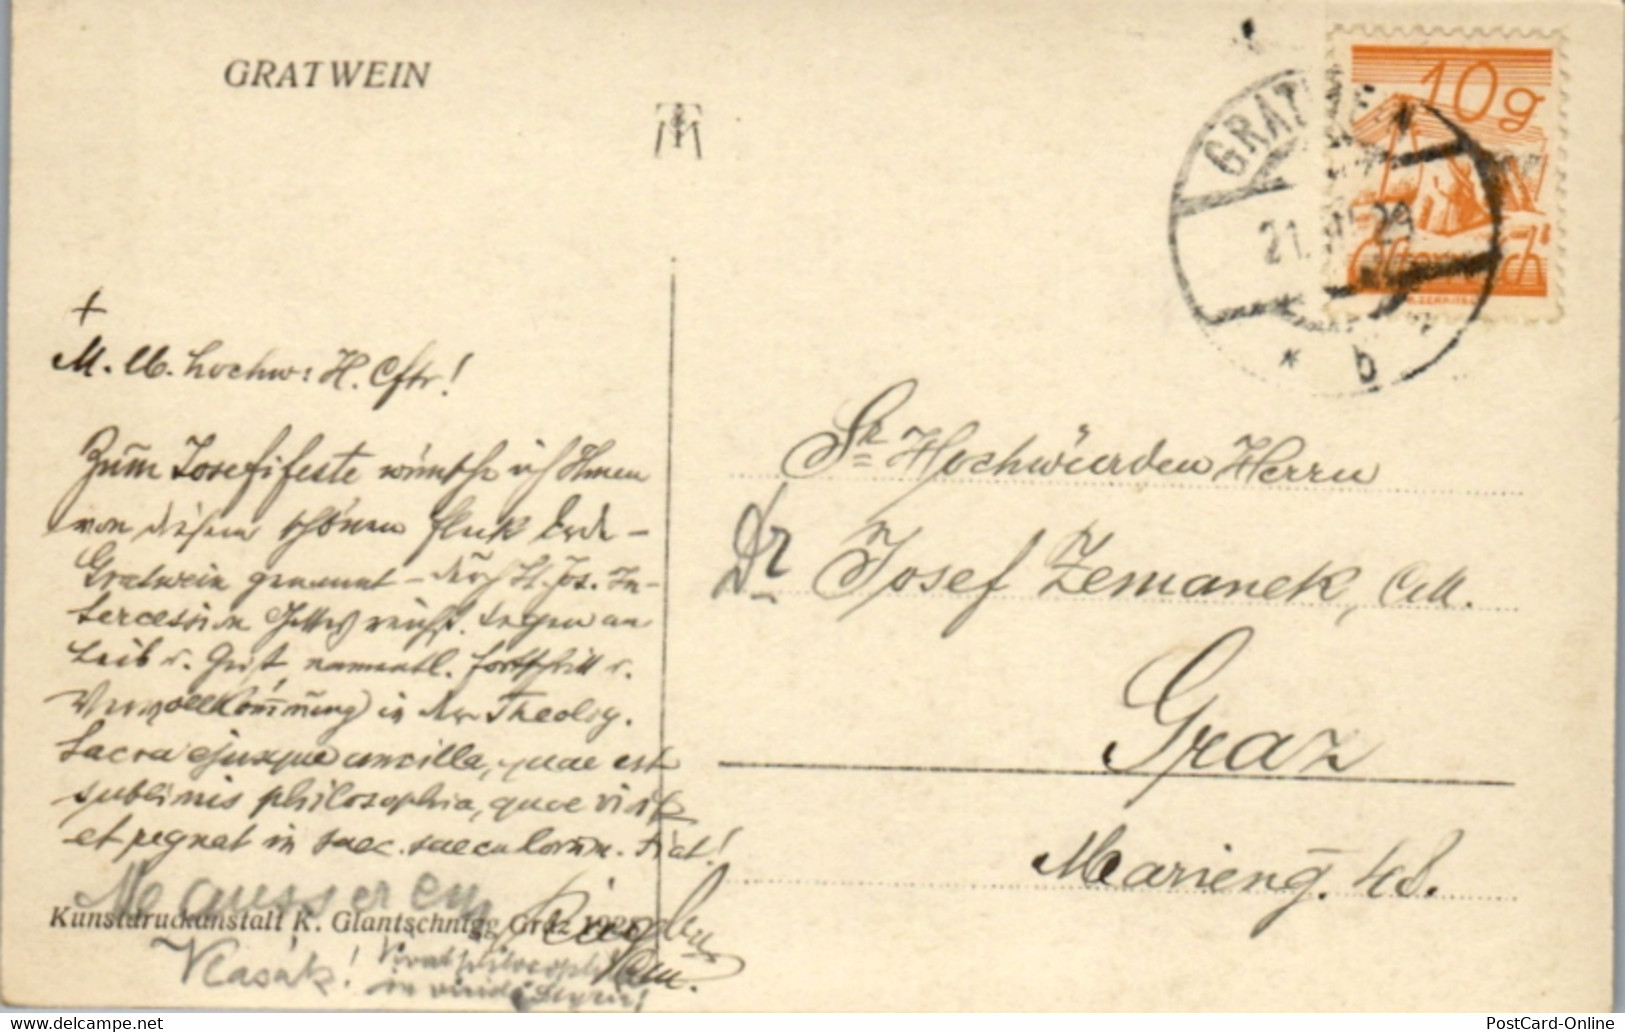 GRATWEIN
10g
Österreich
GRATWEIN
21. 29
* b
+
M. lb. hochw: H. Cftr!
Zum Josefifeste wünsche ich Ihnen
von diesem schönen Fleck Erde –
Gratwein genannt – durch H. Jos. In-
tercession Gottes reichst. Segen an
Leib u. Geist, namentl. Fortschritt u.
Vervollkommnung in der Theolog.
sacra ejusque ancilla, quae est
sublimis philosophia, quae vivit
et regnat in saec. saeculorum. Fiat!
Kunstdruckanstalt K. Glantschnigg Graz 192
Vlasák! Vivat philosophia
in
Sr Hochwürden Herrn
Dr Josef Zemanek, C.M.
Graz
Marieng. 48.
PostCard-Online
www.delcampe.net